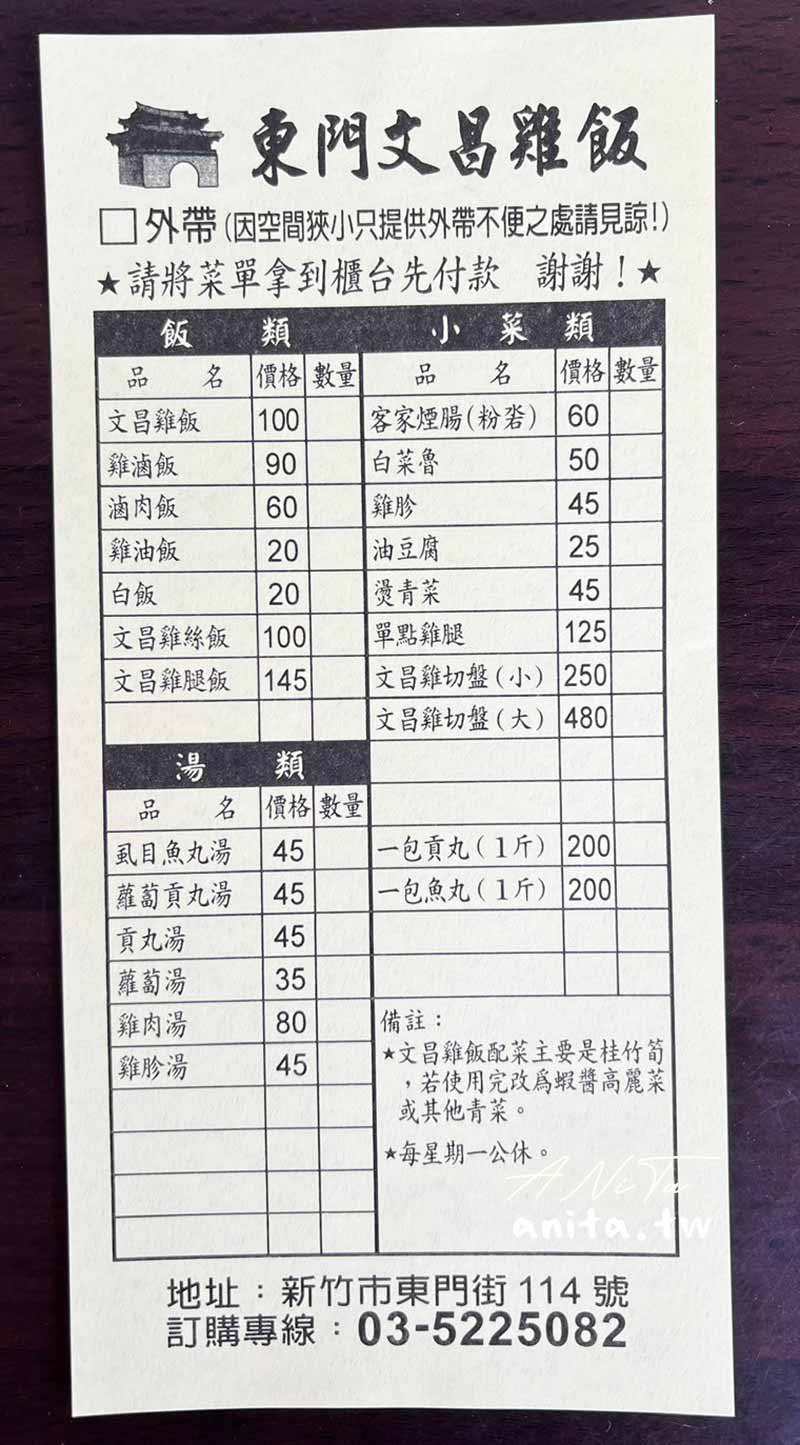 東門文昌雞飯
外帶(因空間狹小只提供外帶不便之處請見諒!)
★請將菜單拿到櫃台先付款 謝謝!★
飯 類
品 名 價格 數量
文昌雞飯 100
雞滷飯 90
滷肉飯 60
雞油飯 20
白飯 20
文昌雞絲飯 100
文昌雞腿飯 145
湯 類
品 名 價格 數量
虱目魚丸湯 45
蘿蔔貢丸湯 45
貢丸湯 45
蘿蔔湯 35
雞肉湯 80
雞胗湯 45
小 菜 類
品 名 價格 數量
客家煙腸(粉砦) 60
白菜魯 50
雞胗 45
油豆腐 25
燙青菜 45
單點雞腿 125
文昌雞切盤(小) 250
文昌雞切盤(大) 480
一包貢丸(1斤) 200
一包魚丸(1斤) 200
備註:
★文昌雞飯配菜主要是桂竹筍
,若使用完改為蝦醬高麗菜
或其他青菜。
★每星期一公休。
ANiTa
anita.tw
地址:新竹市東門街 114 號
訂購專線:03-5225082